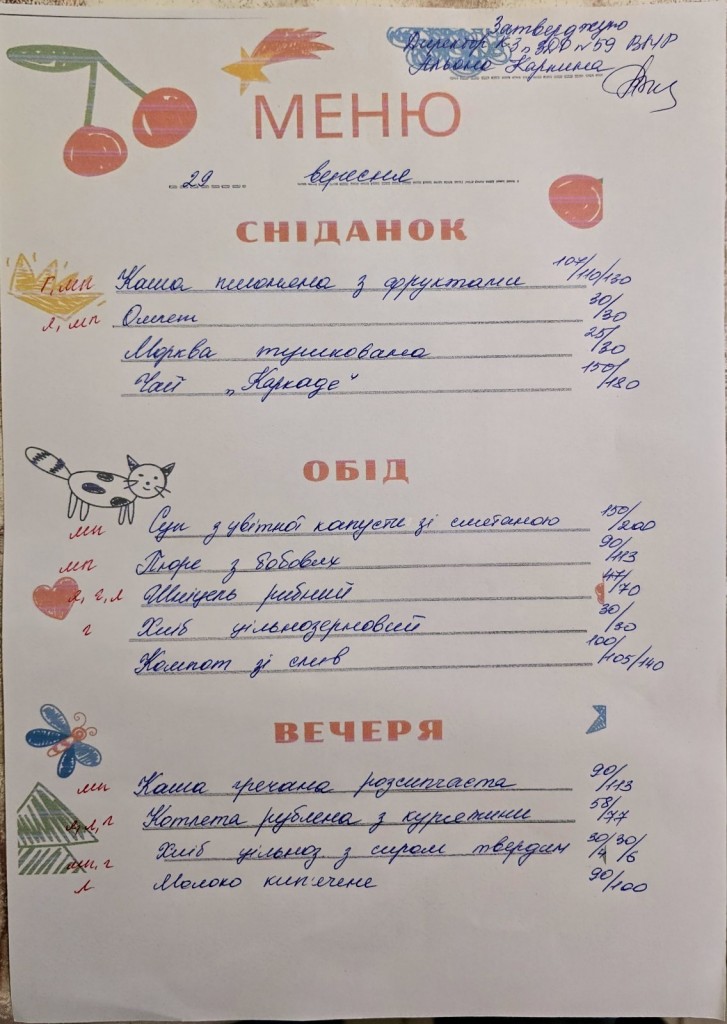 Затверджую
Директор КЗ „ЗДО №59 ВМР
Альона Карпина
МЕНЮ
29 вересня
СНІДАНОК
г, мп Каша пшоняна з фруктами 107/110/130
я, мп Омлет 30/30
Морква тушкована 25/30
Чай „Каркаде“ 150/180
ОБІД
мп Суп з цвітної капусти зі сметаною 150/200
мп Пюре з бобових 90/113
я, г, л Шніцель рибний 47/70
г Хліб цільнозерновий 30/30
Компот зі слив 100/105/140
ВЕЧЕРЯ
мп Каша гречана розсипчаста 90/113
я, л, г Котлета рублена з курятини 58/77
мп, г Хліб цільноз з сиром твердим 30/4 30/6
л Молоко кип'ячене 90/100